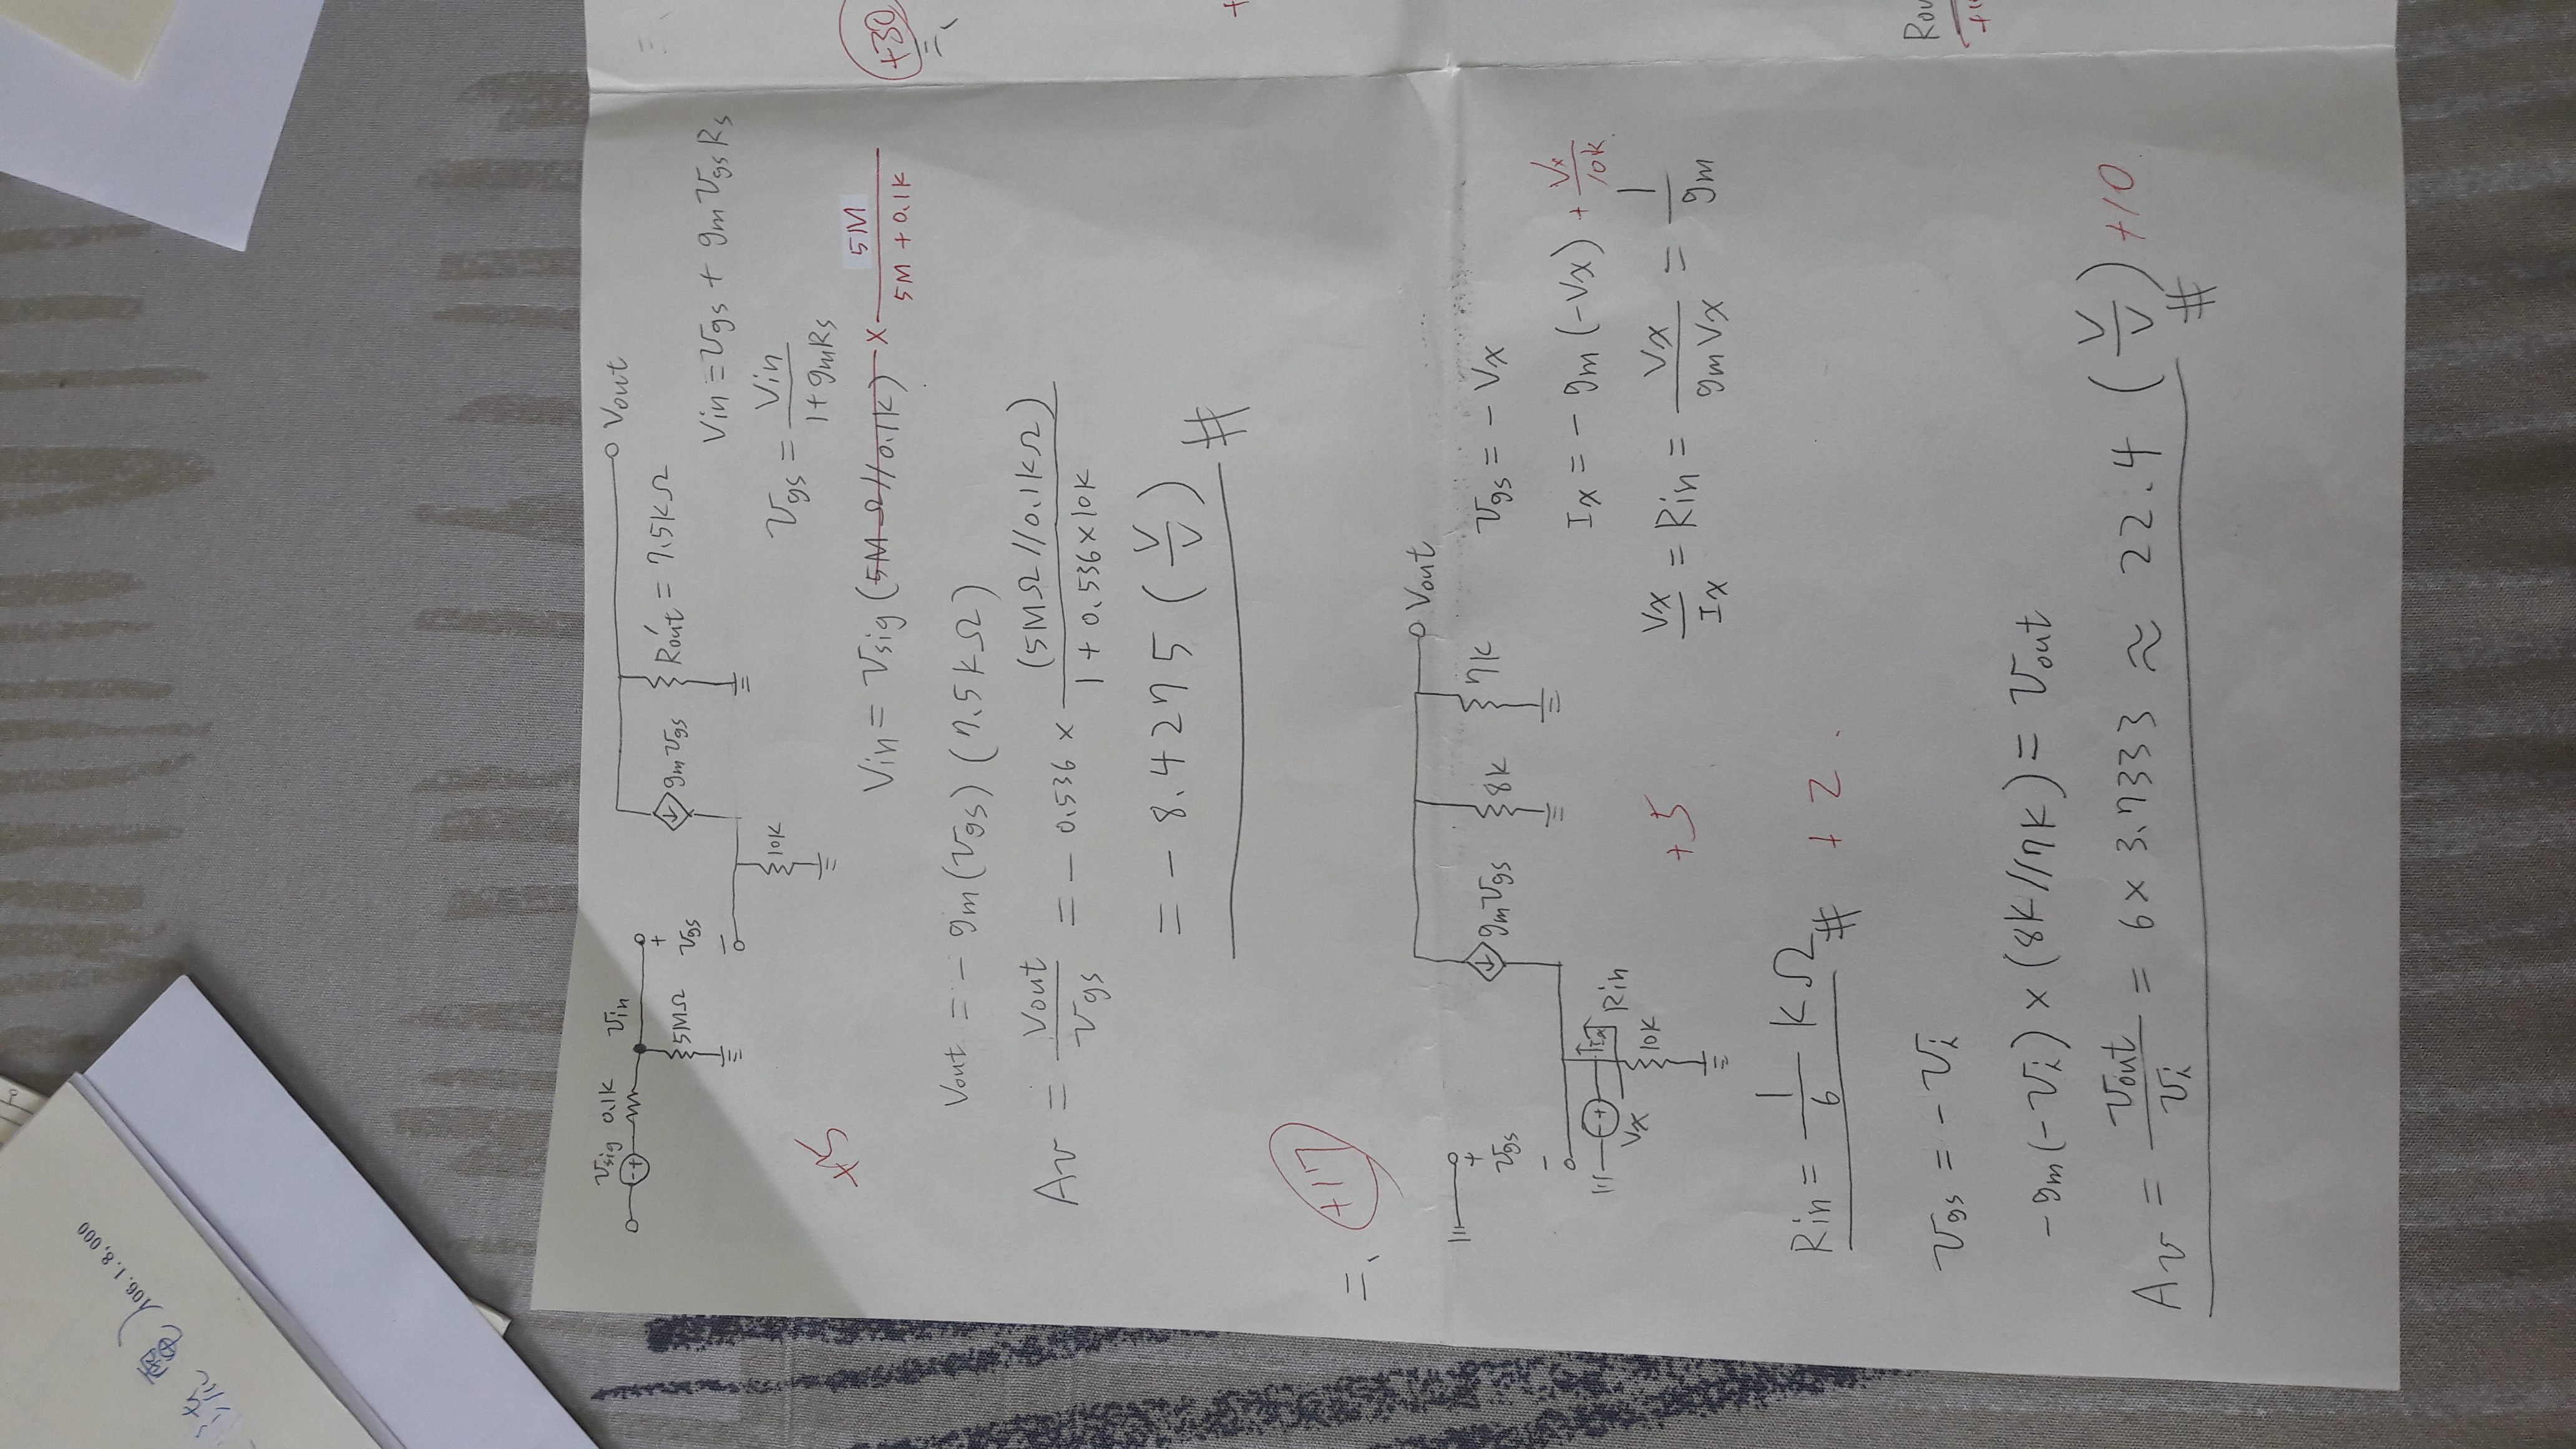 流電)
106.1.8,000
Vsig 0.1K Vin
+
Vgs
-
5MΩ
10K
gmVgs
Rout' = 7.5KΩ
Vout
Vin = Vgs + gmVgsRs
Vgs = Vin / 1+gmRs
+5
Vin = Vsig (5MΩ//0.1K) × 5M / 5M+0.1K
Vout = - gm(Vgs) (7.5KΩ)
Av = Vout / Vgs = - 0.536 × (5MΩ//0.1KΩ) / 1+0.536×10K
= - 8.4275 (V/V) #
二、 +17
+
Vgs
-
gmVgs
8K
7K
Vout
- +
Vx
Ix
Rin
10K
Vgs = - Vx
Ix = - gm (-Vx) + Vx / 10K
+5
Vx / Ix = Rin = Vx / gmVx = 1 / gm
Rin = 1/6 KΩ # +2.
Vgs = - Vi
- gm(-Vi) × (8K//7K) = Vout
Av = Vout / Vi = 6×3.7333 ≈ 22.4 (V/V) # +10
三、
+30
二、
+